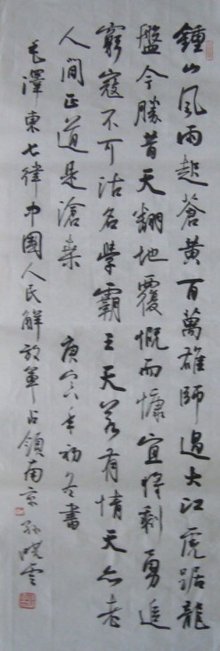 鍾山風雨起蒼黃百萬雄師過大江虎踞龍
盤今勝昔天翻地覆慨而慷宜將剩勇追
窮寇不可沽名學霸王天若有情天亦老
人間正道是滄桑 庚寅年初冬書
毛澤東七律中國人民解放軍占領南京 孫曉雲